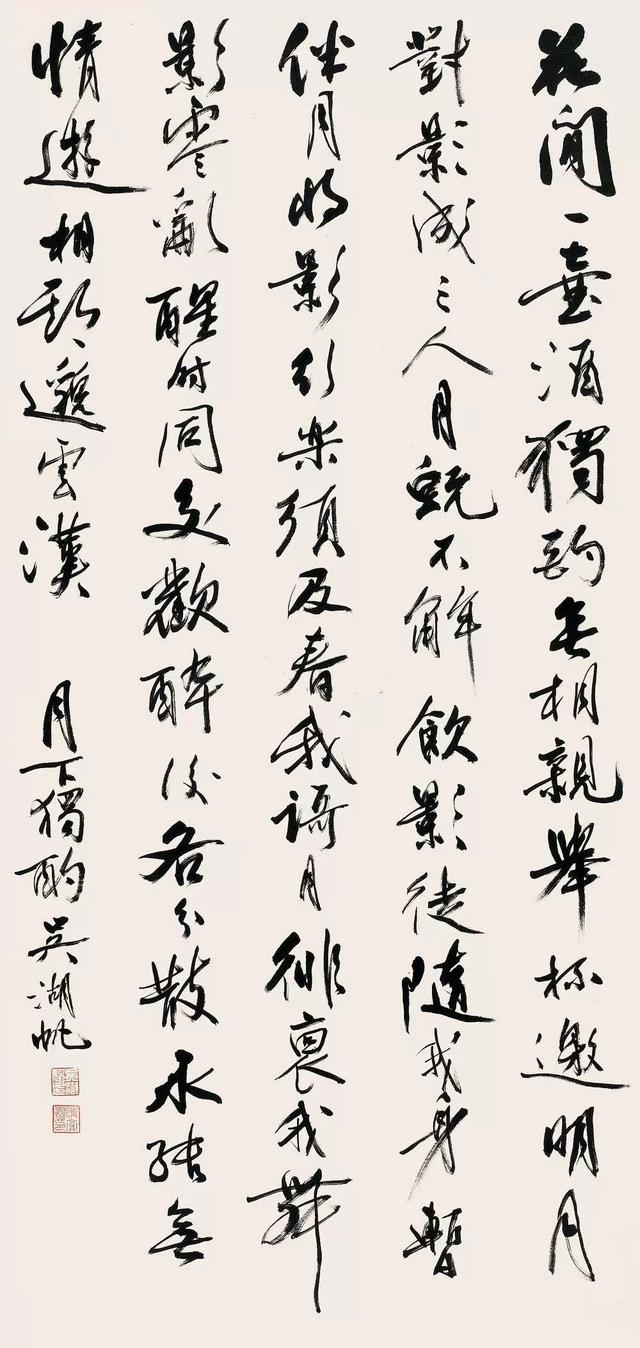 花間一壺酒獨酌無相親舉杯邀明月
對影成三人月既不解飲影徒隨我身暫
伴月將影行樂須及春我謌月徘徊我舞
影零亂醒時同交歡醉後各分散永結無
情遊相期邈雲漢
月下獨酌 吳湖帆